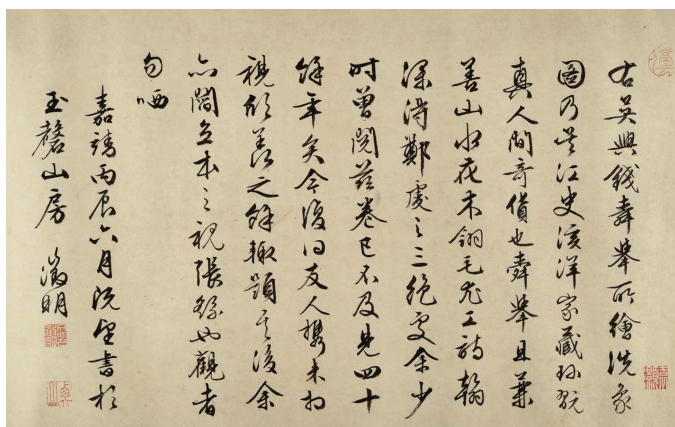 右吳興錢舜舉所繪洗象
圖乃吳江史洋家藏珎翫
真人間奇貨也舜舉且兼
善山水花木翎毛尤工詩翰
深得鄭虔之三絕處余少
时曾閱茲卷已不及見四十
餘年矣今復友人攜来相
視欣羨之餘輒題其後余
亦閻立本之視張繇也觀者
勿哂
嘉靖丙辰六月既望書於
玉磬山房 徵明